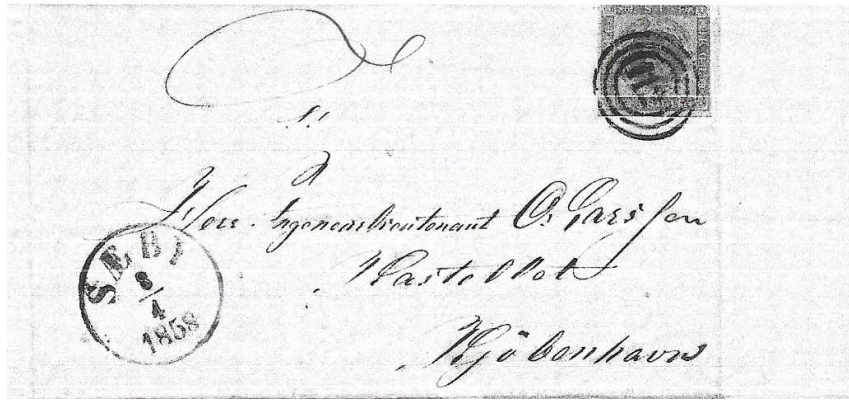 Herr Ingenieurlieutenant O. Larssen
Kastellet
Kjöbenhavn
SEBY
8
4
1858